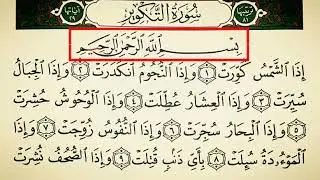 ترتيبها ٨١ سُورَةُ التَّكْوِيرِ آياتها ٢٩
بِسْمِ اللَّهِ الرَّحْمَٰنِ الرَّحِيمِ
إِذَا الشَّمْسُ كُوِّرَتْ ١ وَإِذَا النُّجُومُ انكَدَرَتْ ٢ وَإِذَا الْجِبَالُ
سُيِّرَتْ ٣ وَإِذَا الْعِشَارُ عُطِّلَتْ ٤ وَإِذَا الْوُحُوشُ حُشِرَتْ
٥ وَإِذَا الْبِحَارُ سُجِّرَتْ ٦ وَإِذَا النُّفُوسُ زُوِّجَتْ ٧ وَإِذَا
الْمَوْءُۥدَةُ سُئِلَتْ ٨ بِأَيِّ ذَنبٍ قُتِلَتْ ٩ وَإِذَا الصُّحُفُ نُشِرَتْ